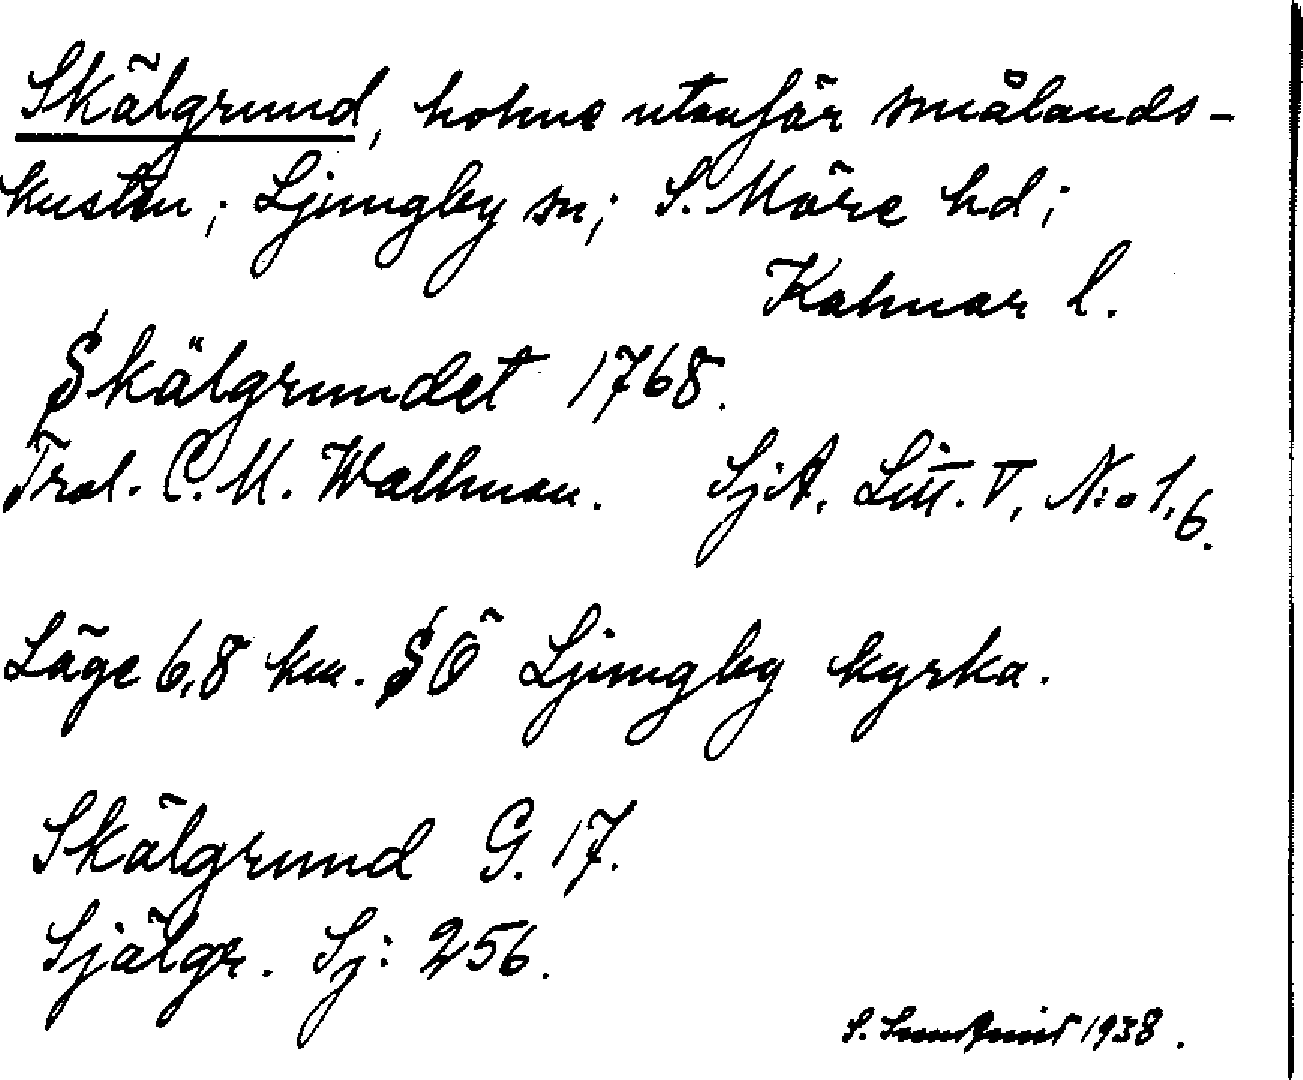 Skälgrund, holme utanför smålands-
kusten; Ljungby sn; S. Möre hd;
Kalmar l.
Skälgrundet 1768.
Trol. C. M. Wallman. SjA. Litt. V, N:o 1,6.
Läge 6,8 km. SÖ Ljungby kyrka.
Skälgrund G. 17.
Själgr. Sj: 256.
S. 1938.